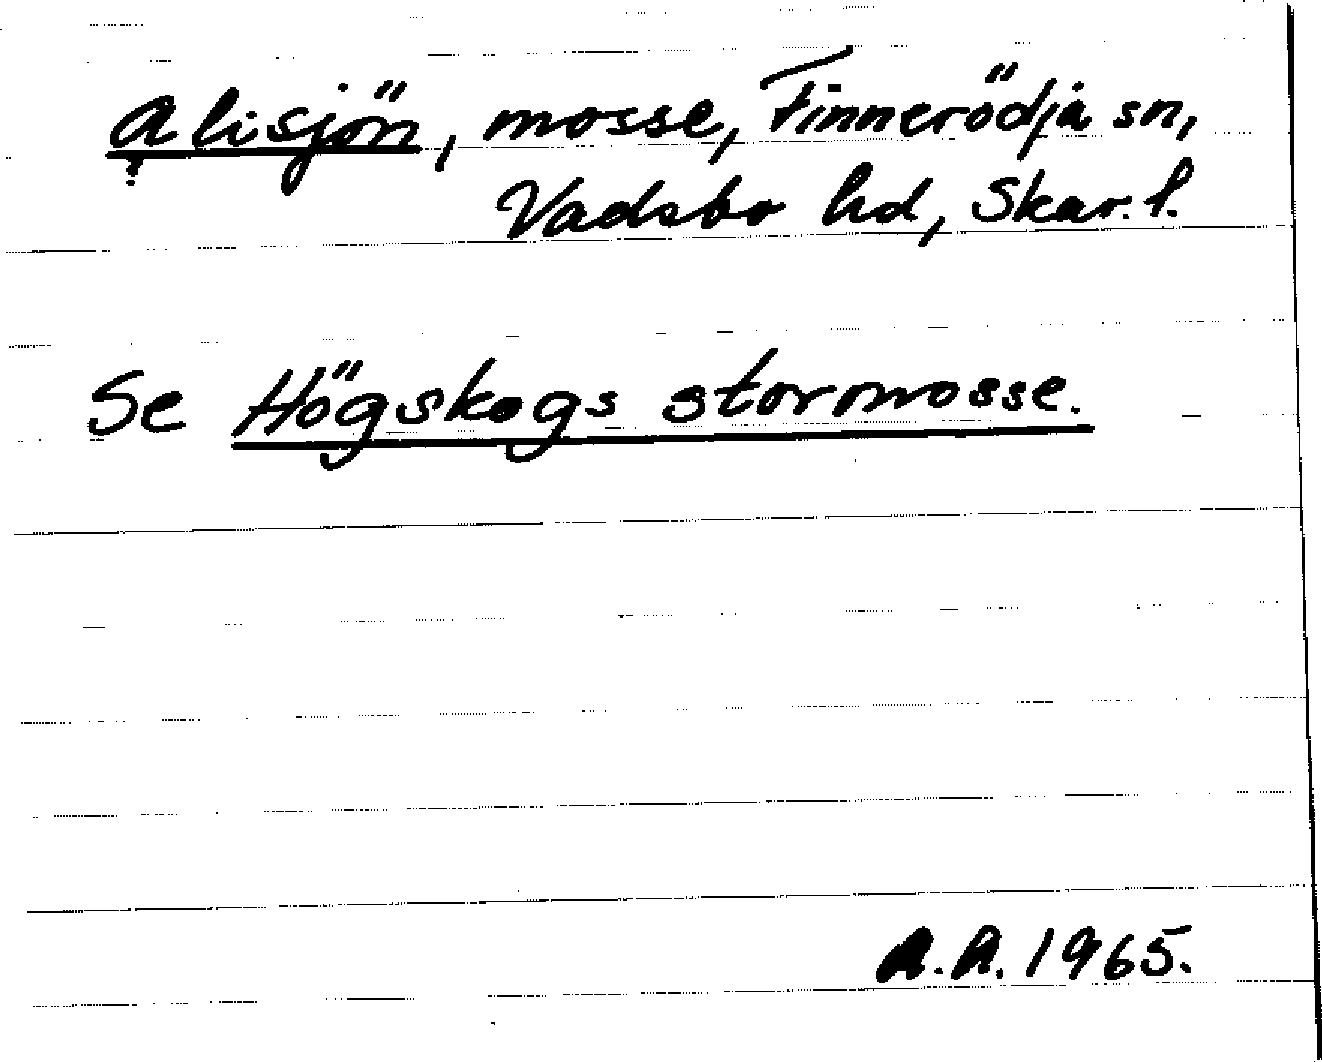 Alisjön, mosse, Finnerödja sn,
Vadsbo hd, Skar. l.
Se Högskogs stormosse.
A.A. 1965.